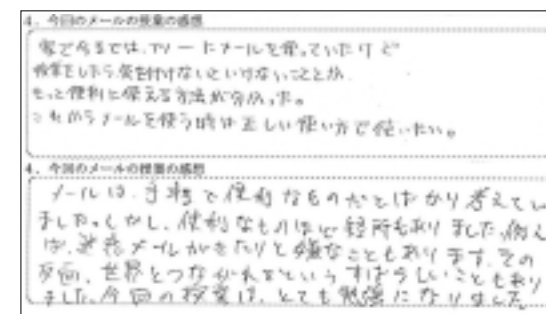 4. 今回のメールの授業の感想
家で今までは、フリーにメールを使っていたけど
授業をしたら気を付けないといけないことが、
もっと便利に使える方法が分かった。
これからメールを使う時は正しい使い方で使いたい。
4. 今回のメールの授業の感想
メールは、手軽で便利なものだとばかり考えてい
ました。しかし、便利なものほど短所もありました。例え
ば、迷惑メールがきたりと嫌なこともあります。その
反面、世界とつながれるというすばらしいこともあり
ました。今回の授業は、とても勉強になりました